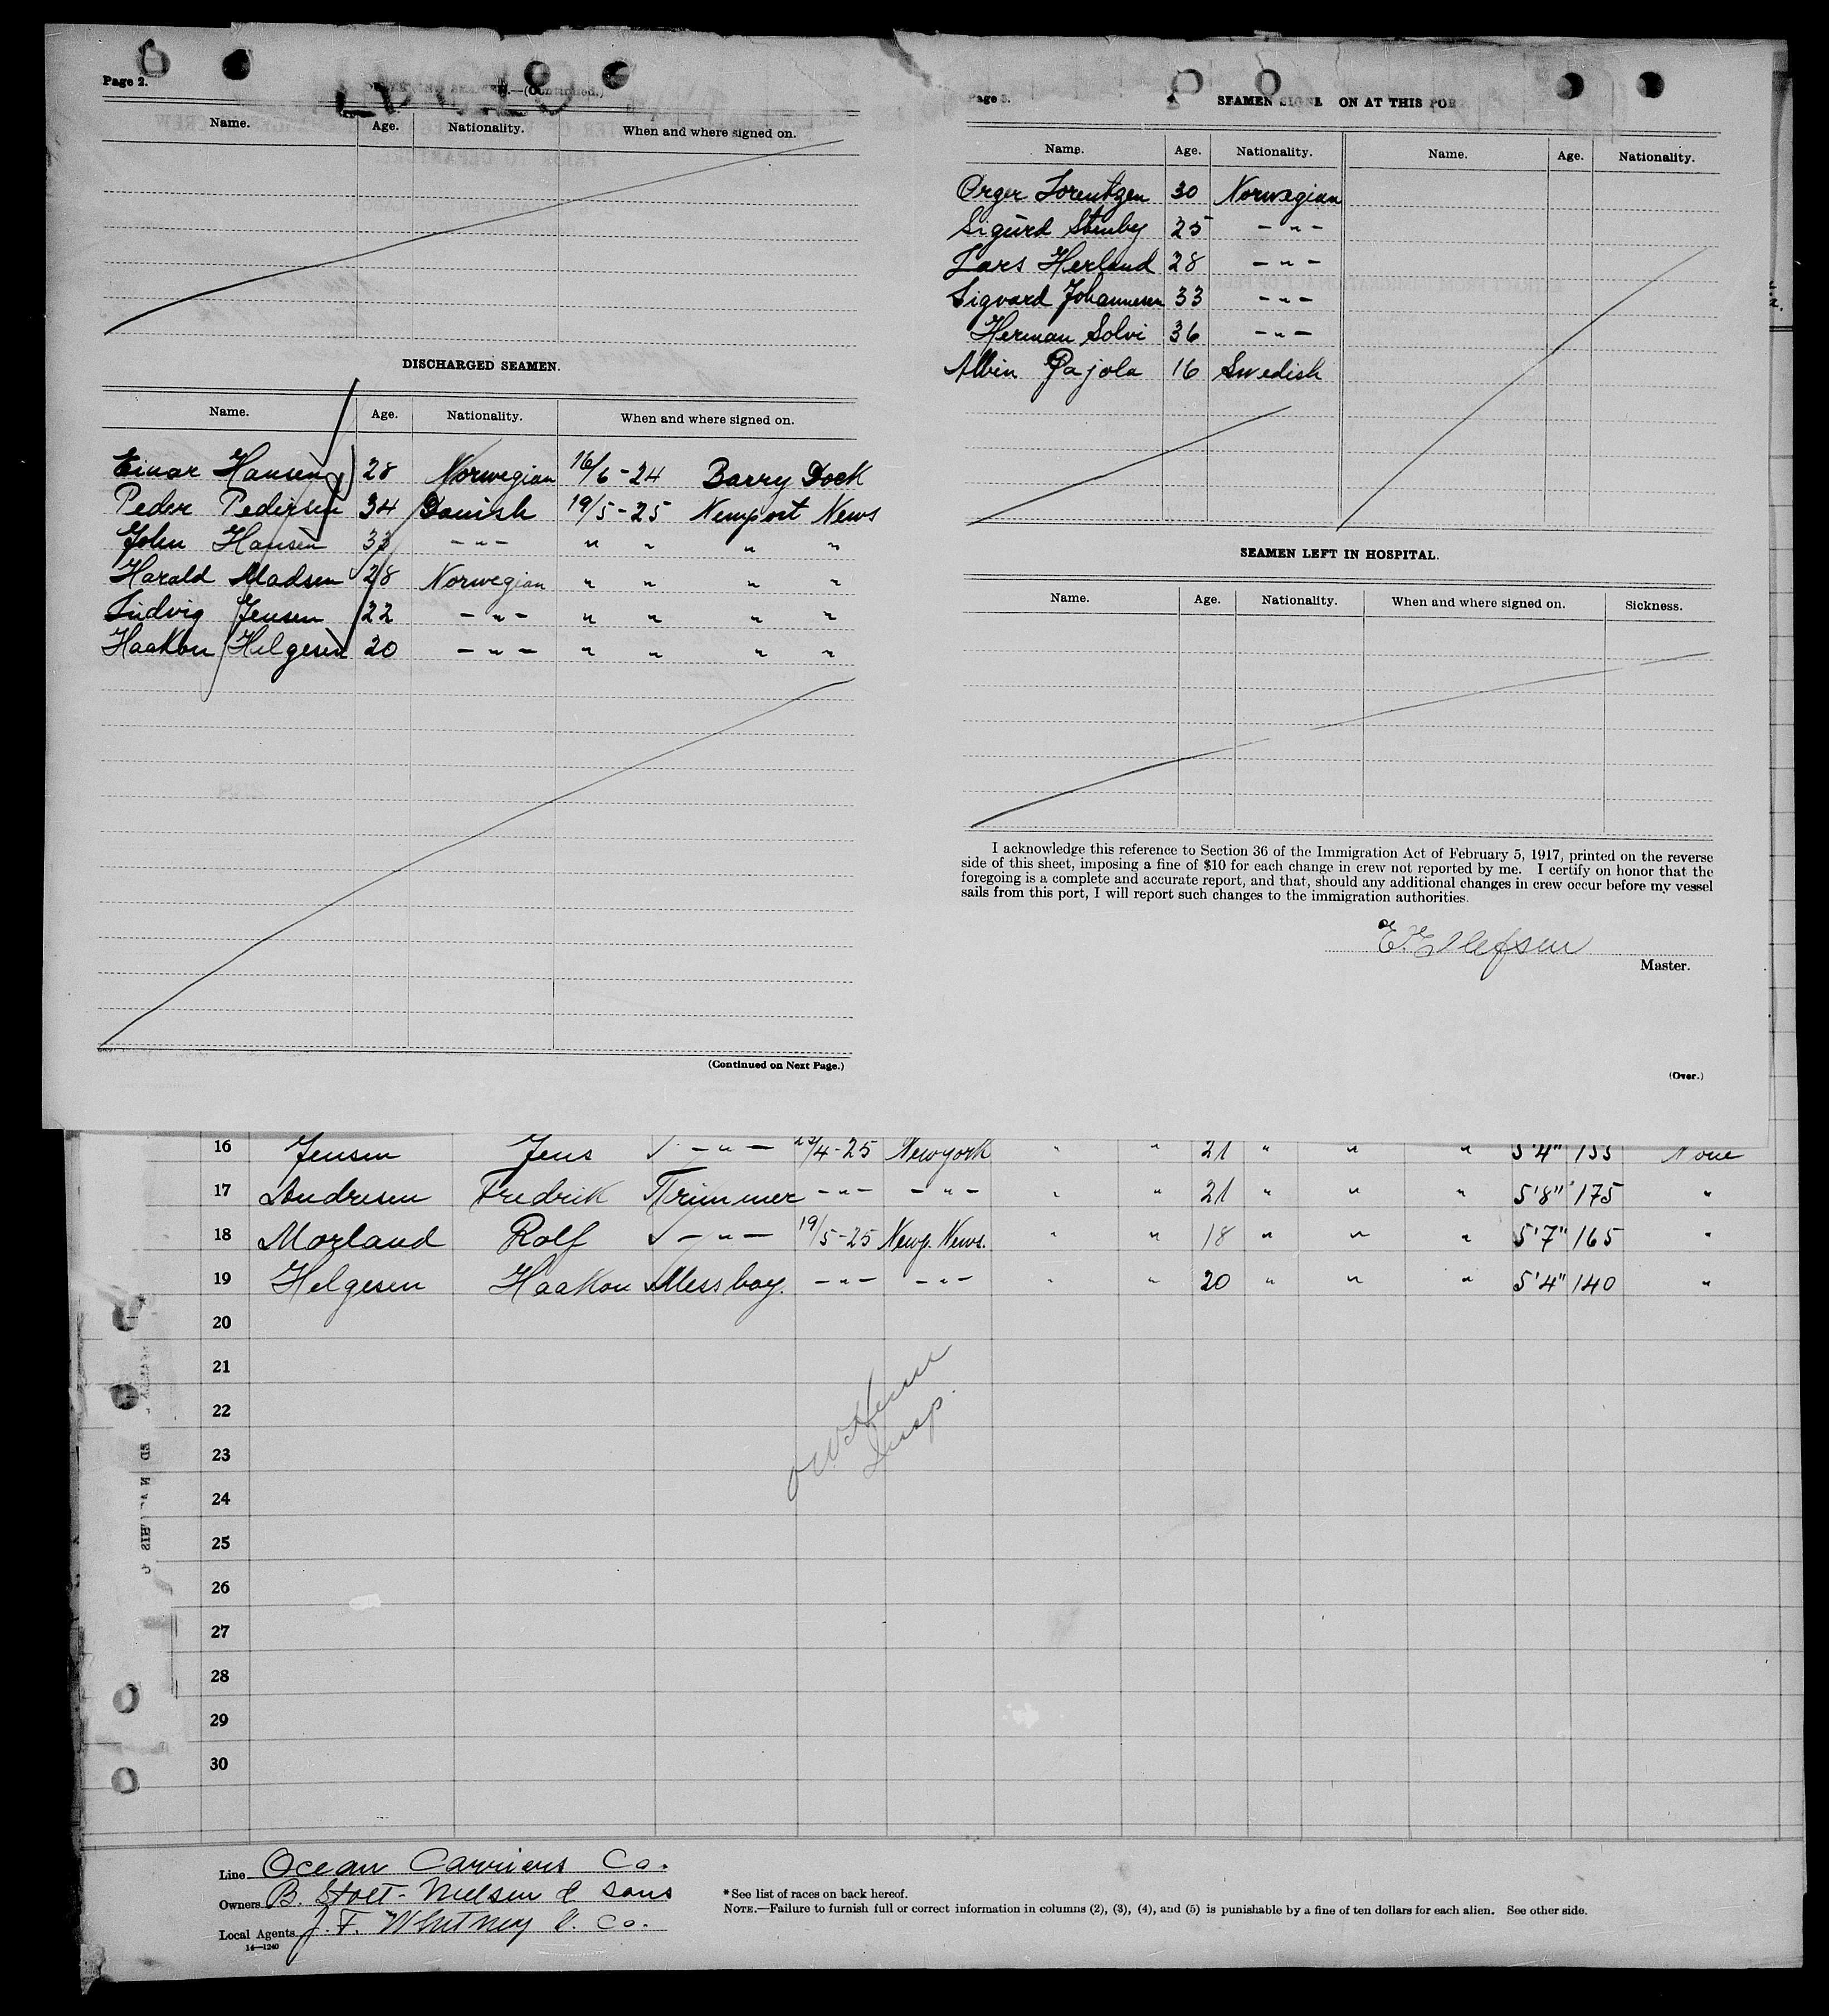 Page 2.
—(Continued.)
Name. Age. Nationality. When and where signed on.
DISCHARGED SEAMEN.
Name. Age. Nationality. When and where signed on.
Einar Hansen 28 Norwegian 16/6-24 Barry Dock
Peder Pedersen 34 Danish 19/5-25 Newport News
John Hansen 33 -"- " " " "
Harald Madsen 28 Norwegian " " " "
Ludvig Jensen 22 -"- " " " "
Haakon Helgesen 20 -"- " " " "
(Continued on Next Page.)
Page 3.
SEAMEN SIGNE ON AT THIS POR
Name. Age. Nationality. Name. Age. Nationality.
Lorentzen 30 Norwegian
Sigurd Stenby 25 -"-
Lars Herland 28 -"-
Sigvard Johannesen 33 -"-
Herman Solvi 36 -"-
Albin Pajola 16 Swedish
SEAMEN LEFT IN HOSPITAL.
Name. Age. Nationality. When and where signed on. Sickness.
I acknowledge this reference to Section 36 of the Immigration Act of February 5, 1917, printed on the reverse
side of this sheet, imposing a fine of $10 for each change in crew not reported by me. I certify on honor that the
foregoing is a complete and accurate report, and that, should any additional changes in crew occur before my vessel
sails from this port, I will report such changes to the immigration authorities.
E. Ellefsen
Master.
(Over.)
16 Jensen Jens ✓ -"- /4-25 Newyork " " 21 " " " 5'4" 155 None
17 Andresen Fredrik Trimmer -"- -"- " " 21 " " " 5'8" 175 "
18 Morland Rolf ✓ -"- 19/5-25 Newp. News. " " 18 " " " 5'7" 165 "
19 Helgesen Haakon Mess boy. -"- -"- " " 20 " " " 5'4" 140 "
20
21
22
23
24
25
26
27
28
29
30
Insp.
Line Ocean Carriers Co.
Owners B. Stolt-Nielsen & Sons
Local Agents J. F. Whitney & Co.
14—1240
*See list of races on back hereof.
NOTE.—Failure to furnish full or correct information in columns (2), (3), (4), and (5) is punishable by a fine of ten dollars for each alien. See other side.